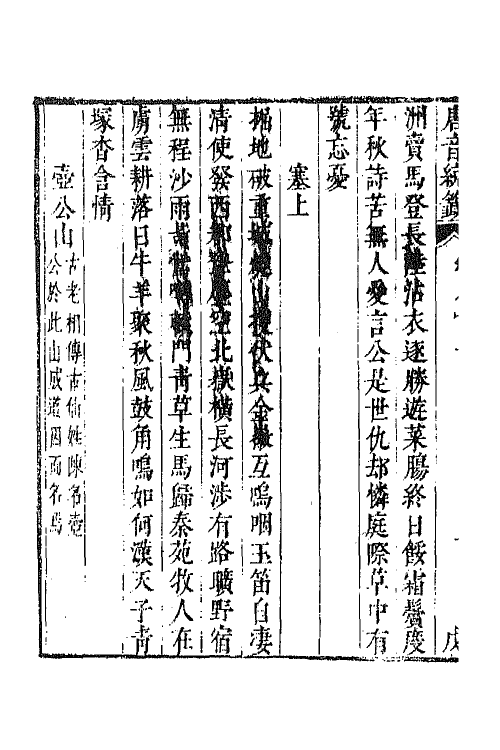 唐音統籤
洲賣馬登長陸沾衣逐勝遊菜腸終日餒霜鬢度
年秋詩苦無人愛言公是世仇却憐庭際草中有
號忘憂
塞上
掘地破重城燒山搜伏兵金徽互嗚咽玉笛自凄
清使發西都空北嶽橫長河涉有路曠野宿
無程沙雨門青草生馬歸秦苑牧人在
虜雲耕落日牛羊聚秋風鼓角鳴如何漢天子青
塚杳含情
壺公山古老相傳古仙姓陳名壺
公於此山成道因而名焉